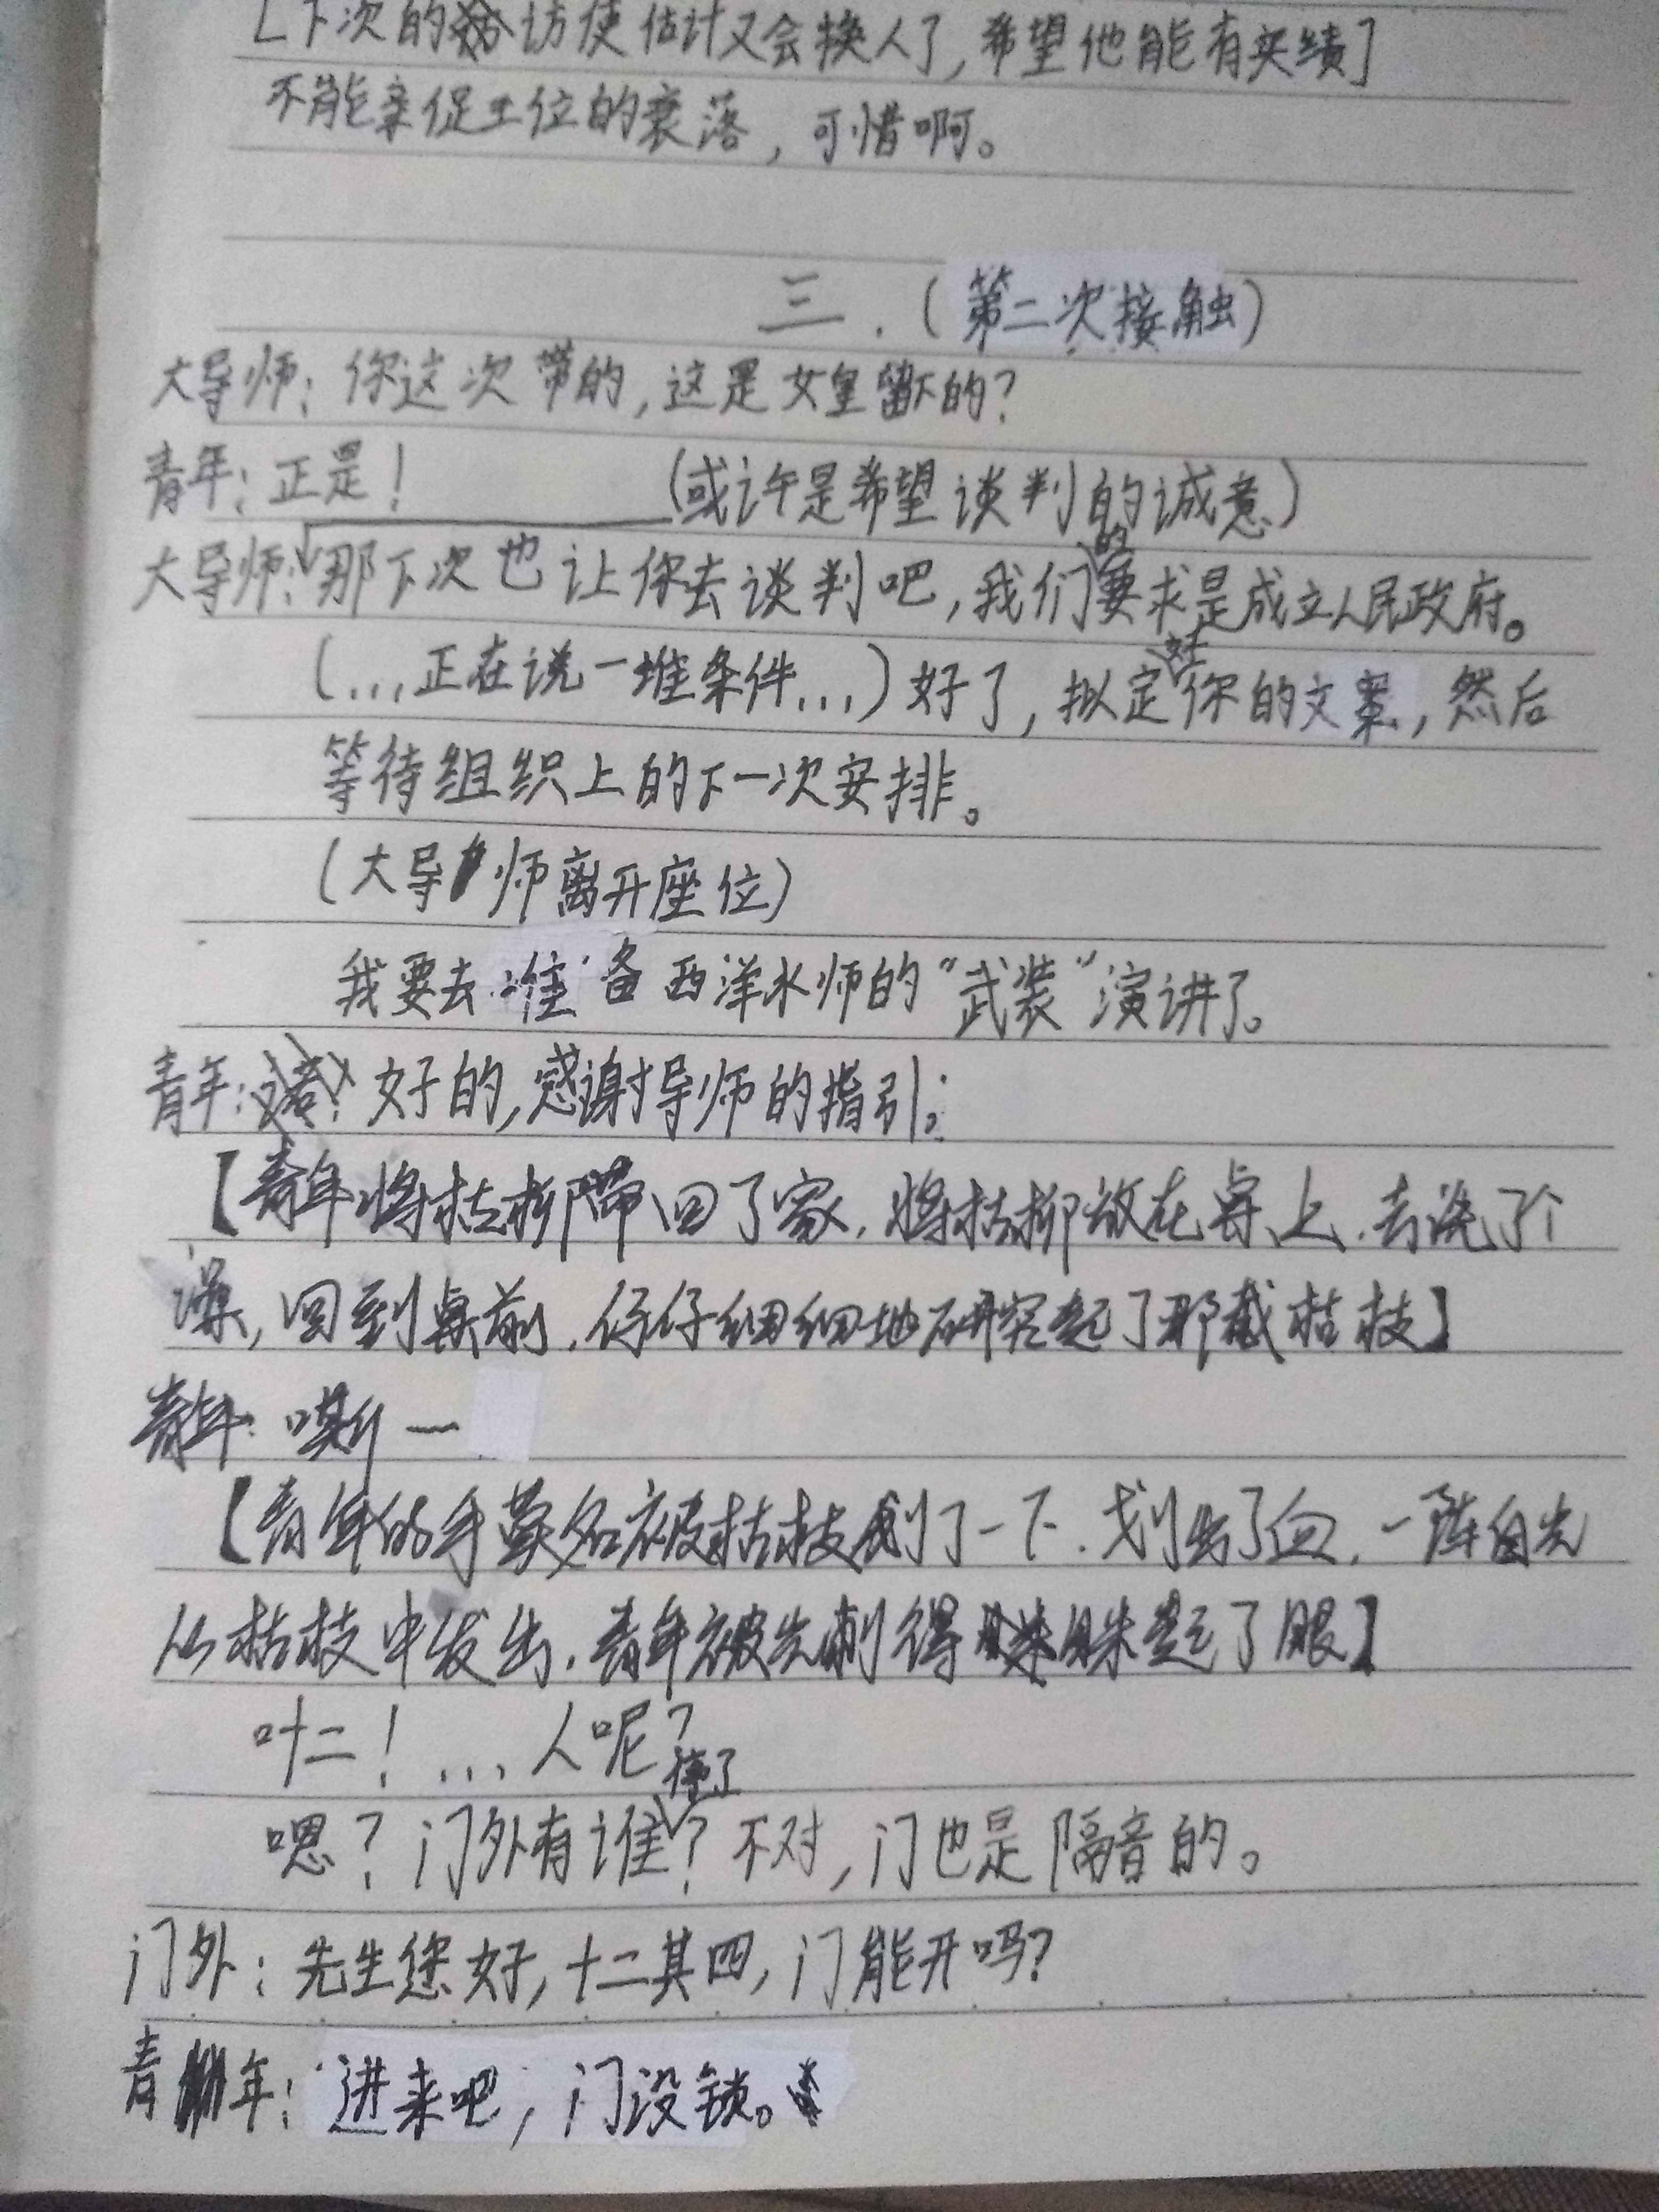 [下次的访使估计又会换人了,希望他能有实绩]
不能亲促王位的衰落,可惜啊。
三.(第二次接触)
大导师:你这次带的,这是女皇留下的?
青年:正是!
(或许是希望谈判的诚意)
大导师:那下次也让你去谈判吧,我们的要求是成立人民政府。
(...正在说一堆条件...)好了,拟定好你的文案,然后
等待组织上的下一次安排。
(大导师离开座位)
我要去准备西洋水师的“武装”演讲了。
青年:好的,感谢导师的指引。
【青年将枯柳带回了家,将枯柳放在桌上,去洗了个
澡,回到桌前,仔仔细细地研究起了那截枯枝】
青年:嘶一
【青年的手莫名被枯枝划了一下,划出了血,一阵白光
从枯枝中发出,青年被光刺得眯起了眼】
叶二!...人呢?
嗯?门外有谁接了?不对,门也是隔音的。
门外:先生您好,十二其四,门能开吗?
青年:进来吧,门没锁。